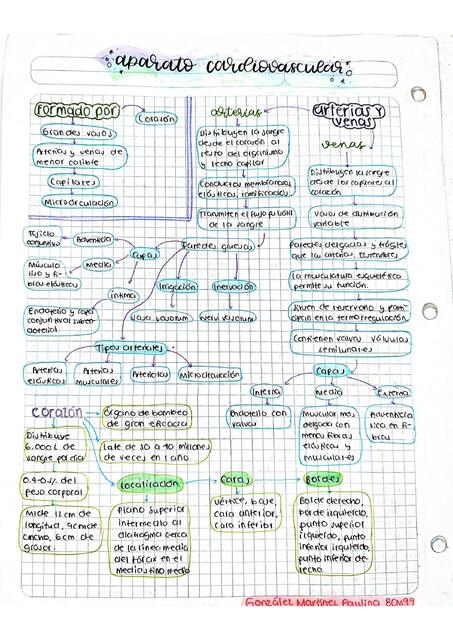 aparato cardiovascular
Formado por
Corazón
Grandes vasos
Arterias y venas de
menor calibre
Capilares
Microcirculación
arterias
Distribuyen la sangre
desde el corazón al
resto del organismo
y lecho capilar
Conductos membranosos,
elásticos,
Transmiten el flujo pulsátil
de la sangre
Paredes gruesas
arterias y
venas
venas
Distribuyen la sangre
desde los capilares al
corazón
Vasos de distribución
variable
Paredes delgadas y frágiles
que las arterias,
La musculatura esquelética
permite su función.
Sirven de reservorio y parti-
cipan en la termorregulación.
Contienen valvas válvulas
semilunares
Capas
Interna
Media
Externa
Endotelio con
valvas
Muscular más
delgada con
menos fibras
elásticas y
musculares
Adventicia
rica en fi-
bras
Capas
Adventicia
Tejido
conjuntivo
Media
Músculo
liso y fi-
bras elásticas
Íntima
Endotelio y capa
conjuntival suben-
dotelial
Irrigación
Vasa vasorum
Inervación
Nervi vasorum
Tipos arteriales
Arterias
elásticas
Arterias
musculares
Arteriolas
Microcirculación
corazón
Órgano de bombeo
de gran eficacia
Late de 30 a 40 millones
de veces en 1 año
Distribuye
6,000 L de
sangre por día
0.4-0.5% del
peso corporal
Mide 12 cm de
longitud, 9 cm de
ancho, 6 cm de
grosor.
Localización
Plano superior
intermedio al
diafragma cerca
de la línea media
del tórax en el
mediastino medio
Caras
Vértice, base,
cara anterior,
cara inferior
Bordes
Borde derecho,
borde izquierdo,
punto superior
izquierdo, punto
inferior izquierdo,
punto inferior de-
recho.
González Martínez Paulina 80M99